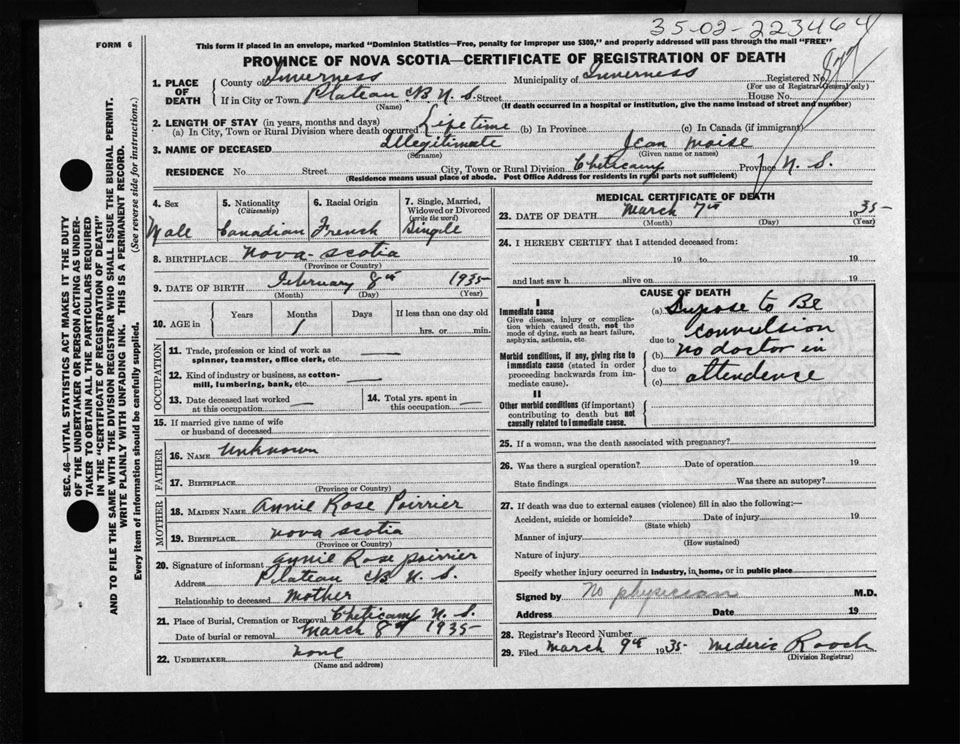 35-02-223464
FORM 6
This form if placed in an envelope, marked "Dominion Statistics—Free, penalty for improper use $300," and properly addressed will pass through the mail "FREE"
PROVINCE OF NOVA SCOTIA—CERTIFICATE OF REGISTRATION OF DEATH
1. PLACE OF DEATH
County of Inverness Municipality of Inverness Registered No.
(For use of Registrar-General only)
If in City or Town Plateau CB N.S. Street House No.
(Name) (If death occurred in a hospital or institution, give the name instead of street and number)
2. LENGTH OF STAY (in years, months and days)
(a) In City, Town or Rural Division where death occurred Lifetime (b) In Province (c) In Canada (if immigrant)
3. NAME OF DECEASED Illegitimate Jean Moise
(Surname) (Given name or names)
RESIDENCE No. Street City, Town or Rural Division Cheticamp Province N.S.
(Residence means usual place of abode. Post Office Address for residents in rural parts not sufficient)
4. Sex
Male
5. Nationality
(Citizenship)
Canadian
6. Racial Origin
French
7. Single, Married,
Widowed or Divorced
(write the word)
Singile
8. BIRTHPLACE Nova-scotia
(Province or Country)
9. DATE OF BIRTH February 8th 1935
(Month) (Day) (Year)
10. AGE in Years Months Days If less than one day old
1 hrs. or min.
OCCUPATION
11. Trade, profession or kind of work as
spinner, teamster, office clerk, etc.
12. Kind of industry or business, as cotton-
mill, lumbering, bank, etc.
13. Date deceased last worked
at this occupation
14. Total yrs. spent in
this occupation
15. If married give name of wife
or husband of deceased
FATHER
16. NAME Unknown
17. BIRTHPLACE
(Province or Country)
MOTHER
18. MAIDEN NAME Annie Rose Poirrier
19. BIRTHPLACE nova scotia
(Province or Country)
20. Signature of informant Annie Rose poirrier
Address Plateau CB N.S.
Relationship to deceased Mother
21. Place of Burial, Cremation or Removal Cheticamp N.S.
Date of burial or removal March 8th 1935
22. UNDERTAKER none
(Name and address)
MEDICAL CERTIFICATE OF DEATH
23. DATE OF DEATH March 7th 1935
(Month) (Day) (Year)
24. I HEREBY CERTIFY that I attended deceased from:
19 to 19
and last saw h alive on 19
CAUSE OF DEATH
I
Immediate cause
Give disease, injury or complica-
tion which caused death, not the
mode of dying, such as heart failure,
asphyxia, asthenia, etc.
Morbid conditions, if any, giving rise to
immediate cause (stated in order
proceeding backwards from im-
mediate cause).
II
Other morbid conditions (if important)
contributing to death but not
causally related to immediate cause.
(a) Supose to Be
due to convulsion
(b) no doctor in
due to
(c) attendence
25. If a woman, was the death associated with pregnancy?
26. Was there a surgical operation? Date of operation 19
State findings Was there an autopsy?
27. If death was due to external causes (violence) fill in also the following:—
Accident, suicide or homicide? Date of injury 19
(State which)
Manner of injury
(How sustained)
Nature of injury
Specify whether injury occurred in industry, in home, or in public place
Signed by No physician M.D.
Address Date 19
28. Registrar's Record Number
29. Filed March 9th 1935 Mederic Roach
(Division Registrar)
SEC. 46—VITAL STATISTICS ACT MAKES IT THE DUTY
OF THE UNDERTAKER OR PERSON ACTING AS UNDER-
TAKER TO OBTAIN ALL THE PARTICULARS REQUIRED
IN THE "CERTIFICATE OF REGISTRATION OF DEATH"
AND TO FILE THE SAME WITH THE DIVISION REGISTRAR WHO SHALL ISSUE THE BURIAL PERMIT.
WRITE PLAINLY WITH UNFADING INK. THIS IS A PERMANENT RECORD.
Every item of information should be carefully supplied. (See reverse side for instructions.)